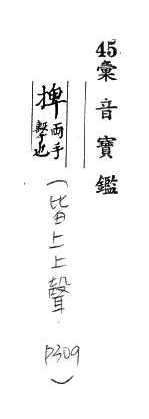 45彙音寶鑑
捭 兩手擊也
(皆上上聲 P309)